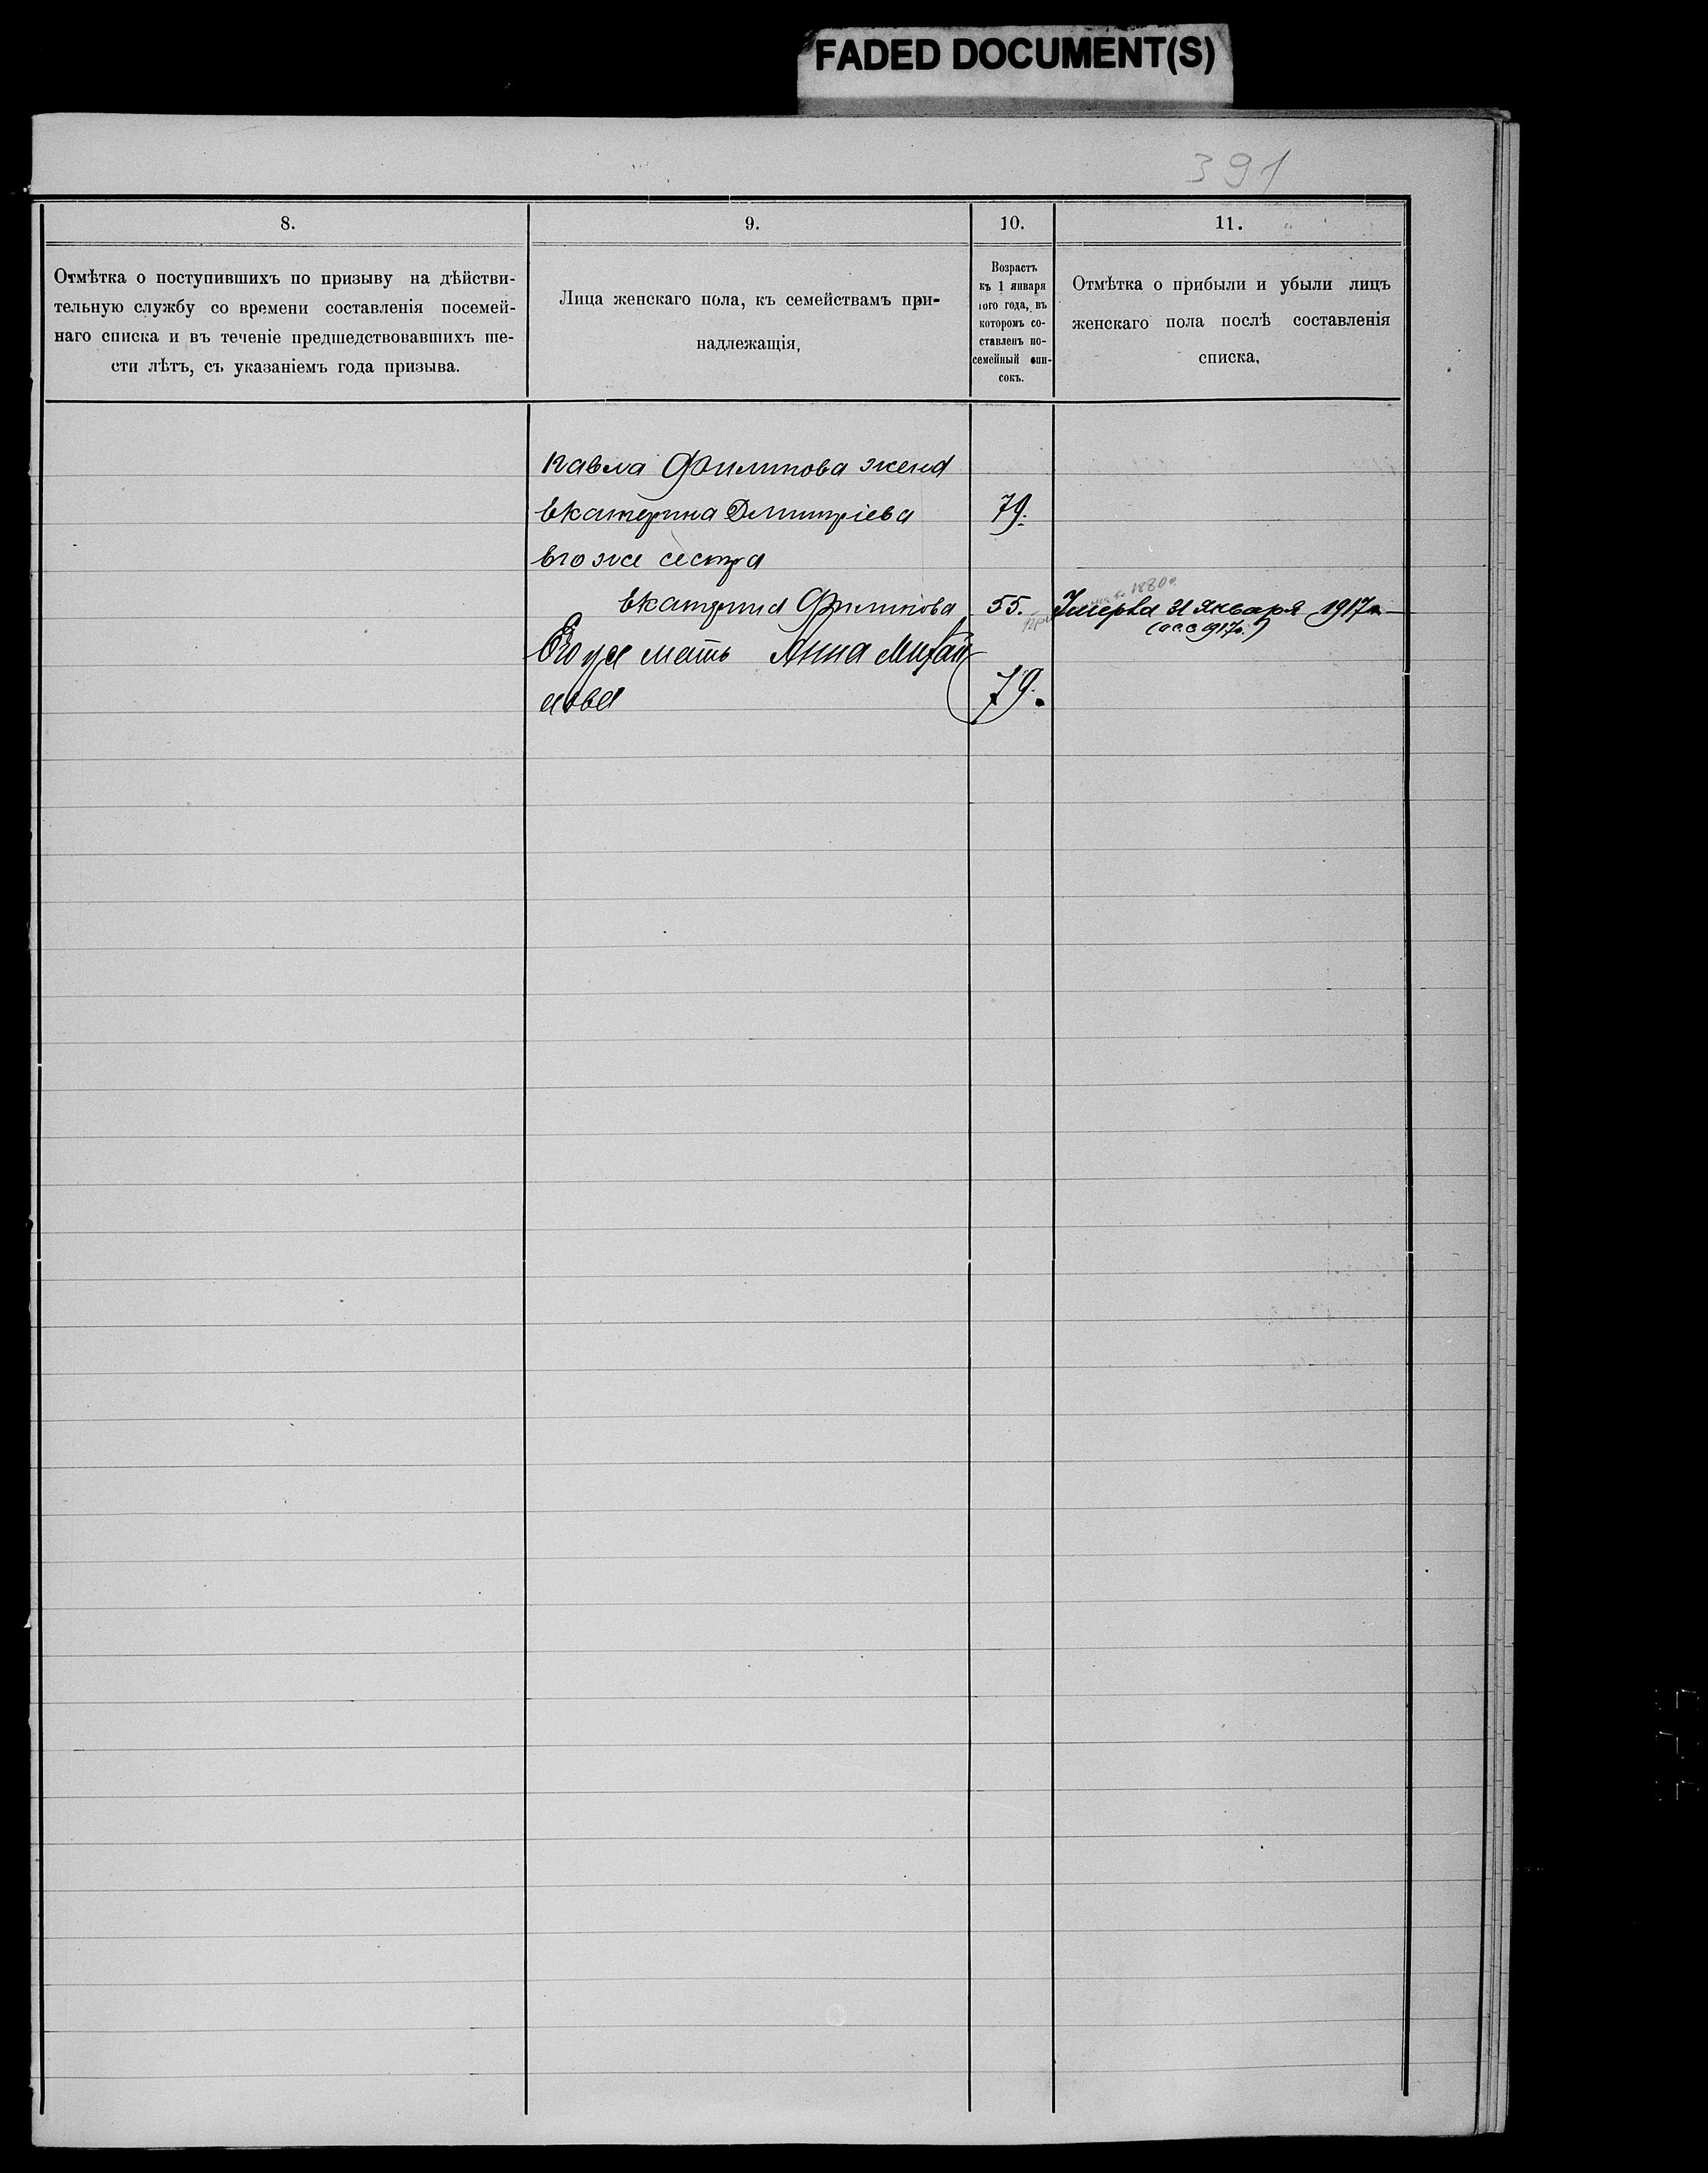 FADED DOCUMENT(S)
391
8.
Отмѣтка о поступившихъ по призыву на дѣйстви-
тельную службу со времени составленія посемей-
наго списка и въ теченіе предшедствовавшихъ ше-
сти лѣтъ, съ указаніемъ года призыва.
9.
Лица женскаго пола, къ семействамъ при-
надлежащія,
10.
Возрастъ
къ 1 января
того года, въ
которомъ со-
ставленъ по-
семейный спи-
сокъ.
11.
Отмѣтка о прибыли и убыли лицъ
женскаго пола послѣ составленія
списка,
Павла Филипова жена
Екатерина Дмитріева 79.
Его же сестра
1880г.
Екатерина Филипова 55. Умерла 21 Января 1917г.
1917г.)
Его же мать Анна Михай
лова 79.